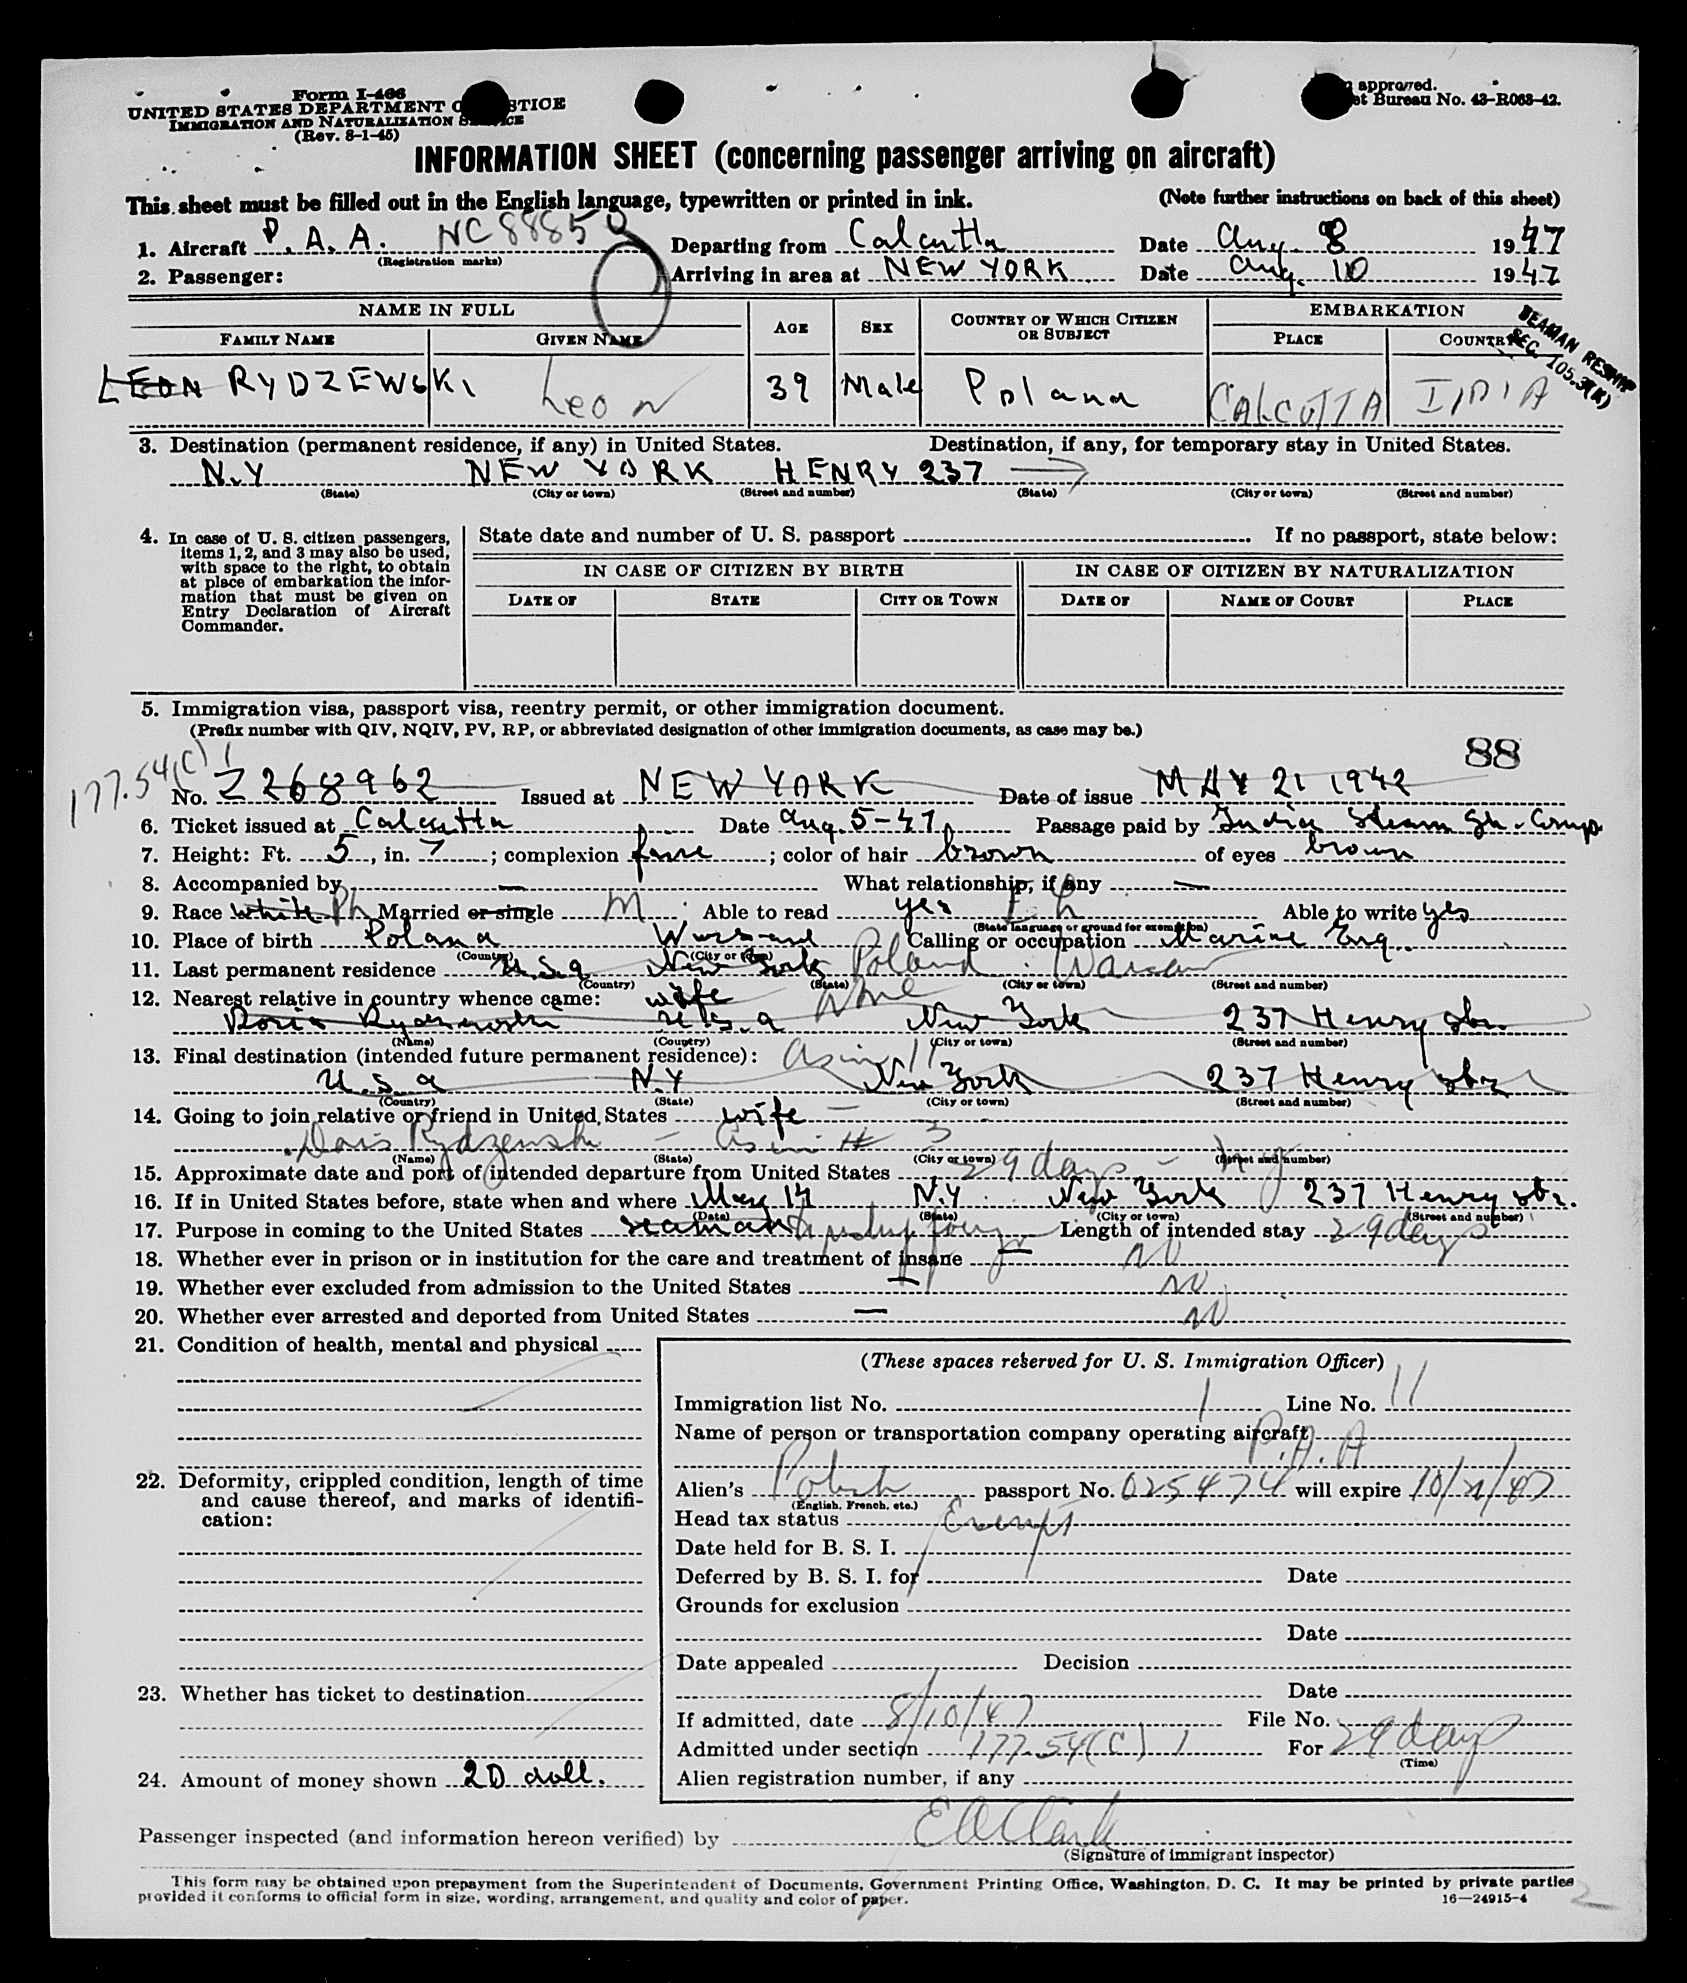 Form I-466
UNITED STATES DEPARTMENT OF JUSTICE
IMMIGRATION AND NATURALIZATION SERVICE
(Rev. 8-1-45)
approved.
Bureau No. 43-R063-42.
INFORMATION SHEET (concerning passenger arriving on aircraft)
This sheet must be filled out in the English language, typewritten or printed in ink. (Note further instructions on back of this sheet)
1. Aircraft P.A.A. NC88850 Departing from Calcutta Date Aug. 8 1947
(Registration marks)
2. Passenger: Arriving in area at NEW YORK Date Aug. 10 1947
NAME IN FULL AGE SEX COUNTRY OF WHICH CITIZEN OR SUBJECT EMBARKATION
FAMILY NAME GIVEN NAME PLACE COUNTRY
SEAMAN RESHIP
SEC. 105.3(K)
LEON RYDZEWSKI Leon 39 Male Poland CALCUTTA INDIA
3. Destination (permanent residence, if any) in United States. Destination, if any, for temporary stay in United States.
N.Y NEW YORK HENRY 237
(State) (City or town) (Street and number) (State) (City or town) (Street and number)
4. In case of U. S. citizen passengers, items 1, 2, and 3 may also be used, with space to the right, to obtain at place of embarkation the information that must be given on Entry Declaration of Aircraft Commander.
State date and number of U. S. passport If no passport, state below:
IN CASE OF CITIZEN BY BIRTH IN CASE OF CITIZEN BY NATURALIZATION
DATE OF STATE CITY OR TOWN DATE OF NAME OF COURT PLACE
5. Immigration visa, passport visa, reentry permit, or other immigration document.
(Prefix number with QIV, NQIV, PV, RP, or abbreviated designation of other immigration documents, as case may be.)
88
177.54(C) 1
No. Z 268962 Issued at NEW YORK Date of issue MAY 21 1942
6. Ticket issued at Calcutta Date Aug. 5-47 Passage paid by India Steam Sh. Comp
7. Height: Ft. 5, in. 7; complexion fare; color of hair brown of eyes brown
8. Accompanied by — What relationship, if any —
9. Race White Married or single M; Able to read yes Able to write yes
(State language or ground for exemption)
10. Place of birth Poland Warsaw Calling or occupation Marine Eng.
(Country) (City or town)
11. Last permanent residence U.S.a New York Poland Warsaw
(Country) (State) (City or town) (Street and number)
12. Nearest relative in country whence came: wife
Doris Rydzewski U.S.a New York 237 Henry str.
(Name) (Country) (City or town) (Street and number)
13. Final destination (intended future permanent residence): as in 11
U.S.a N.Y New York 237 Henry str
(Country) (State) (City or town) (Street and number)
14. Going to join relative or friend in United States wife —
Doris Rydzewski — as in # 3
(Name) (State) (City or town) (Street and number)
15. Approximate date and port of intended departure from United States 29 days - NY
16. If in United States before, state when and where May 14 N.Y. New York 237 Henry str.
(Date) (State) (City or town) (Street and number)
17. Purpose in coming to the United States seaman Length of intended stay 29 days
18. Whether ever in prison or in institution for the care and treatment of insane — NO
19. Whether ever excluded from admission to the United States — NO
20. Whether ever arrested and deported from United States — NO
21. Condition of health, mental and physical
(These spaces reserved for U. S. Immigration Officer)
Immigration list No. 1 Line No. 11
Name of person or transportation company operating aircraft
P.A.A
22. Deformity, crippled condition, length of time and cause thereof, and marks of identification:
Alien's Polish passport No. 025474 will expire 10/21/47
(English, French, etc.)
Head tax status Exempt
Date held for B. S. I.
Deferred by B. S. I. for Date
Grounds for exclusion
Date
Date appealed Decision
23. Whether has ticket to destination
Date
If admitted, date 8/10/47 File No.
Admitted under section 177.54(C) 1 For 29 days
(Time)
24. Amount of money shown 20 doll.
Alien registration number, if any
Passenger inspected (and information hereon verified) by E A Clark
(Signature of immigrant inspector)
This form may be obtained upon prepayment from the Superintendent of Documents, Government Printing Office, Washington, D. C. It may be printed by private parties
provided it conforms to official form in size, wording, arrangement, and quality and color of paper. 16—24915-4
2